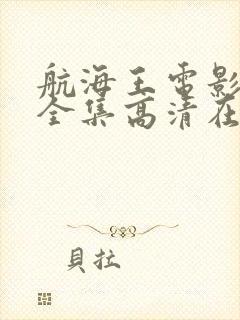 航海王电影
全集高清在
貝拉